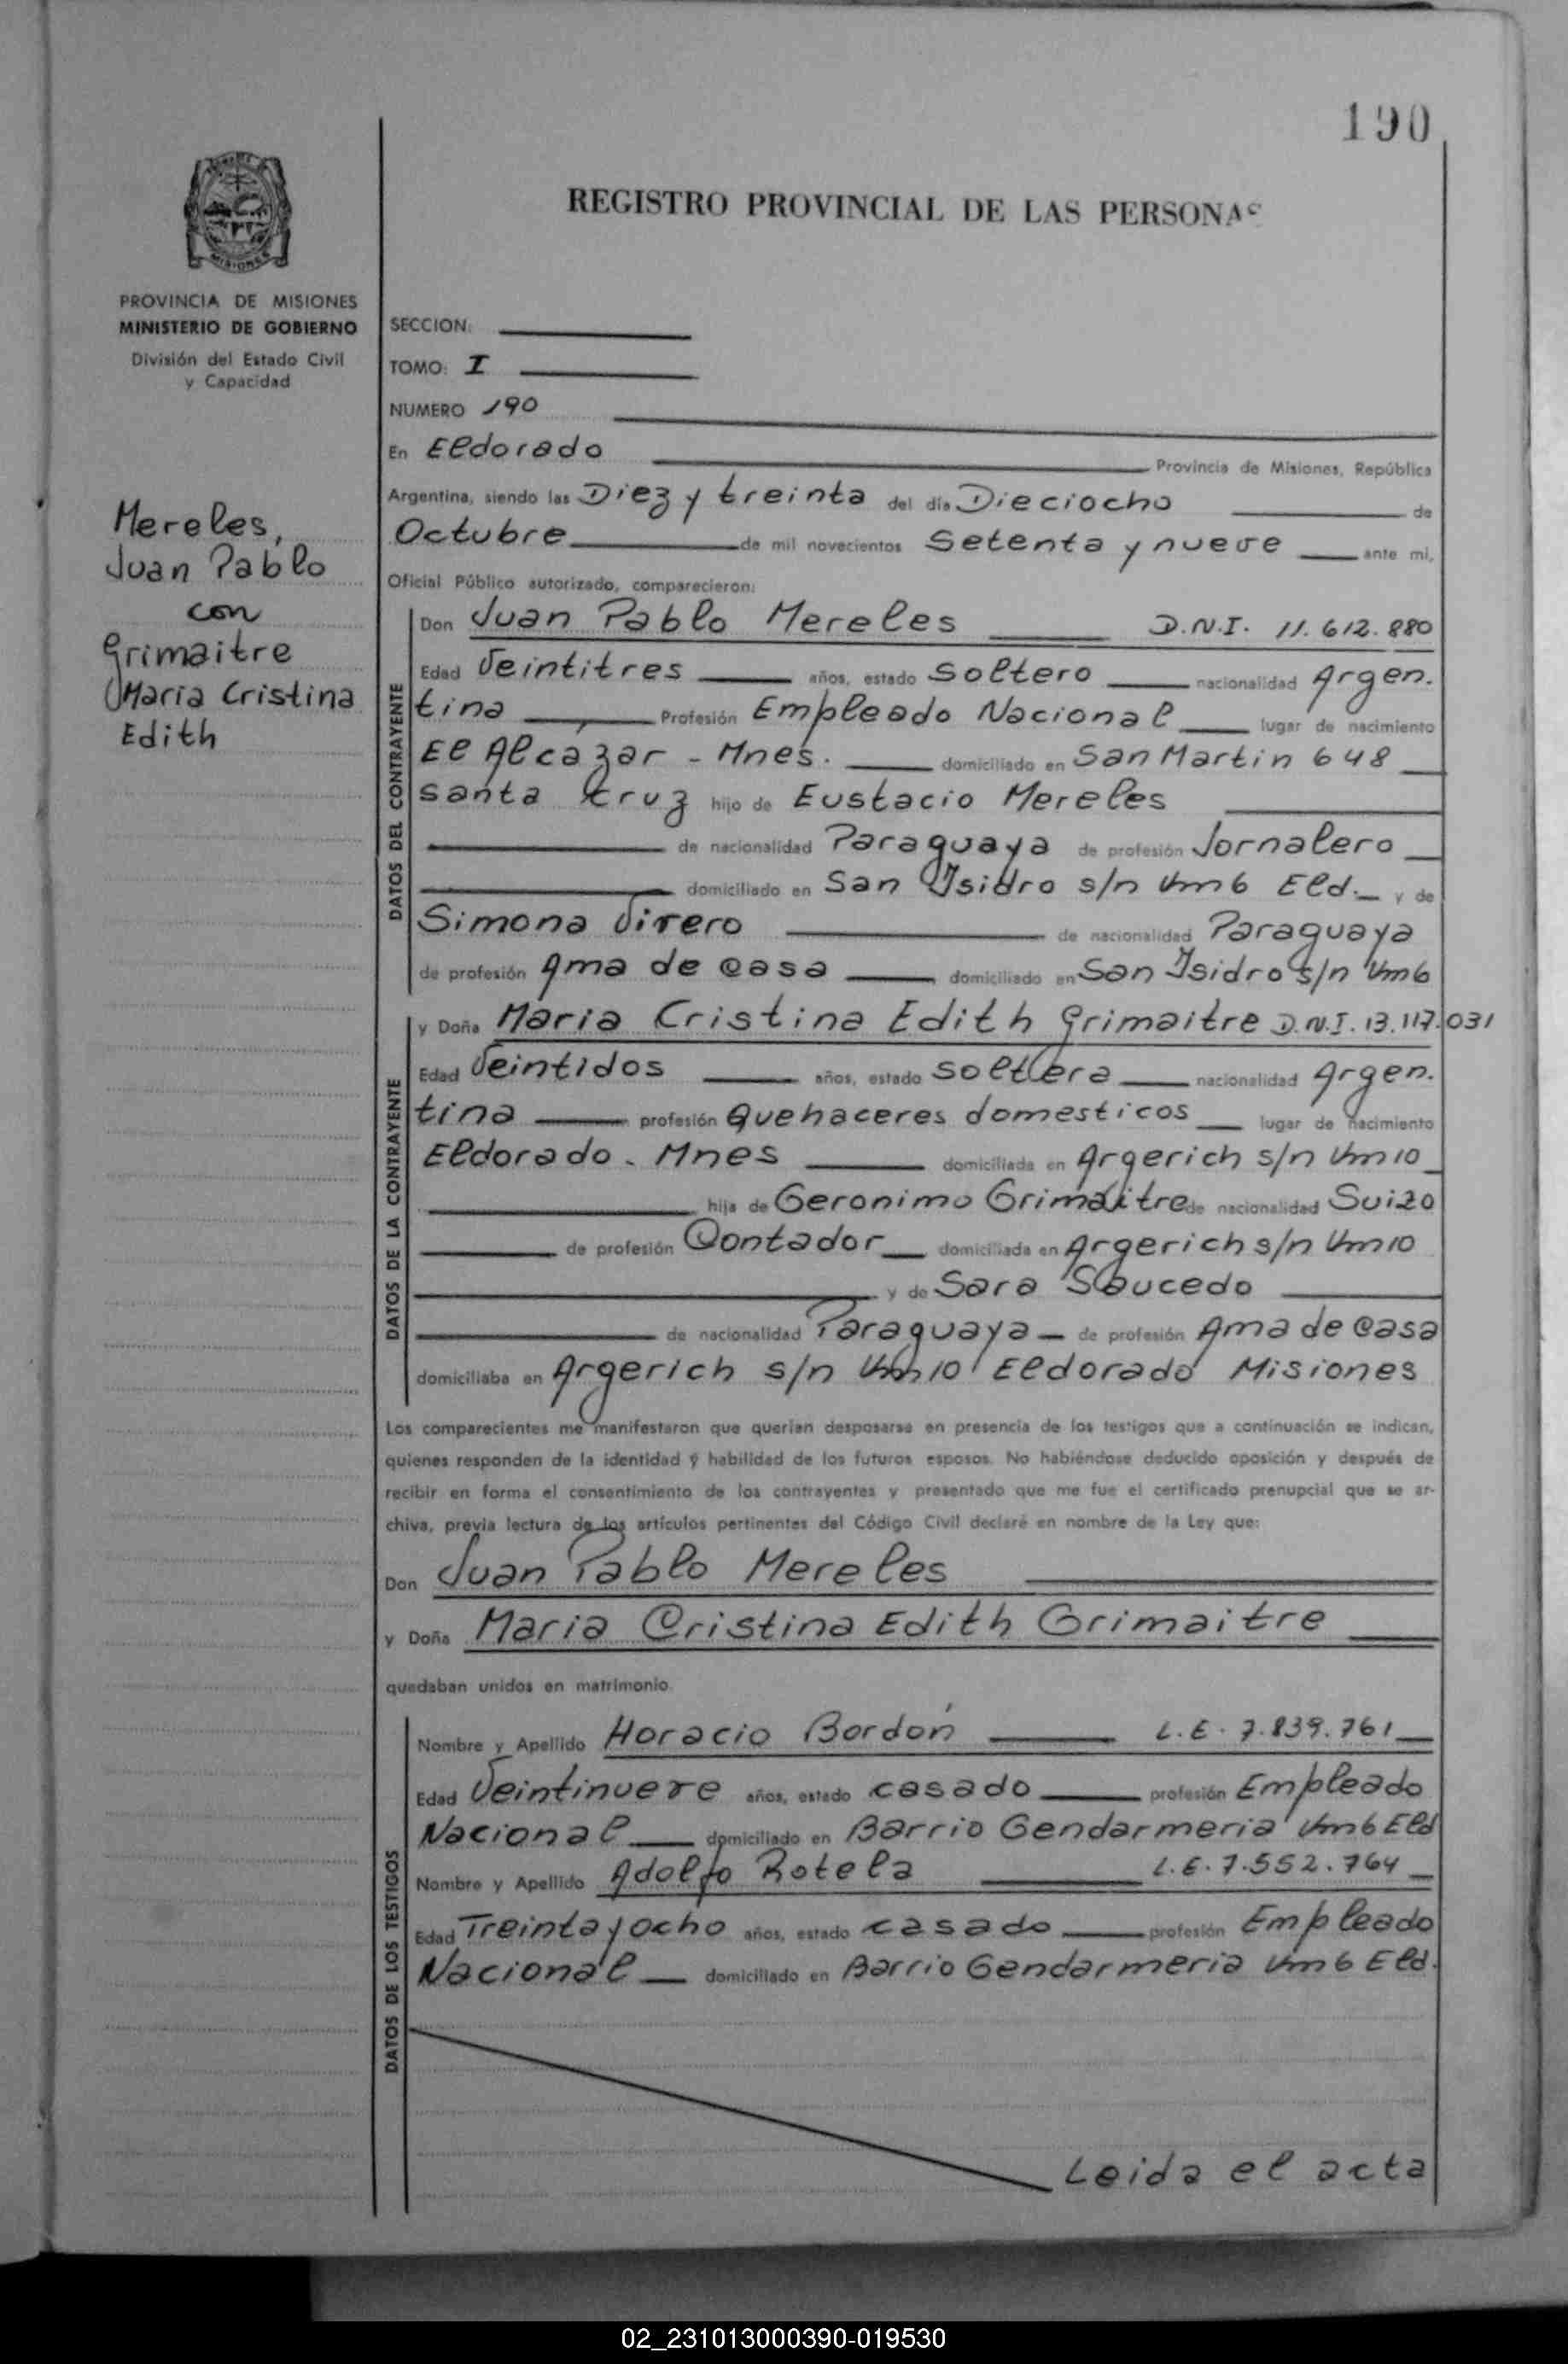 190
REGISTRO PROVINCIAL DE LAS PERSONAS
MISIONES
PROVINCIA DE MISIONES
MINISTERIO DE GOBIERNO
División del Estado Civil
y Capacidad
Mereles,
Juan Pablo
con
Grimaitre
Maria Cristina
Edith
SECCION:
TOMO: I
NUMERO 190
En Eldorado Provincia de Misiones, República
Argentina, siendo las Diez y treinta del día Dieciocho de
Octubre de mil novecientos Setenta y nueve ante mi,
Oficial Público autorizado, comparecieron:
DATOS DEL CONTRAYENTE
Don Juan Pablo Mereles D.N.I. 11.612.880
Edad Veintitres años, estado Soltero nacionalidad Argen.
tina Profesión Empleado Nacional lugar de nacimiento
El Alcázar - Mnes. domiciliado en San Martin 648
Santa Cruz hijo de Eustacio Mereles
de nacionalidad Paraguaya de profesión Jornalero
domiciliado en San Isidro s/n Km6 Eld. y de
Simona de nacionalidad Paraguaya
de profesión Ama de Casa domiciliado en San Isidro s/n Km6
DATOS DE LA CONTRAYENTE
y Doña Maria Cristina Edith Grimaitre D.N.I. 13.117.031
Edad Veintidos años, estado Soltera nacionalidad Argen.
tina profesión Quehaceres domesticos lugar de nacimiento
Eldorado. Mnes domiciliada en Argerich s/n Km10
hija de Geronimo Grimaitre de nacionalidad Suizo
de profesión Contador domiciliada en Argerich s/n Km10
y de Sara Saucedo
de nacionalidad Paraguaya de profesión Ama de Casa
domiciliaba en Argerich s/n Km10 Eldorado Misiones
Los comparecientes me manifestaron que querían desposarse en presencia de los testigos que a continuación se indican,
quienes responden de la identidad y habilidad de los futuros esposos. No habiéndose deducido oposición y después de
recibir en forma el consentimiento de los contrayentes y presentado que me fue el certificado prenupcial que se ar-
chiva, previa lectura de los artículos pertinentes del Código Civil declaré en nombre de la Ley que:
Don Juan Pablo Mereles
y Doña Maria Cristina Edith Grimaitre
quedaban unidos en matrimonio.
DATOS DE LOS TESTIGOS
Nombre y Apellido Horacio Bordón L.E. 7.839.761
Edad Veintinueve años, estado casado profesión Empleado
Nacional domiciliado en Barrio Gendarmeria Km6 Eld
Nombre y Apellido Adolfo Rotela L.E. 7.552.764
Edad Treinta y ocho años, estado casado profesión Empleado
Nacional domiciliado en Barrio Gendarmeria Km6 Eld.
Leida el acta
02_231013000390-019530